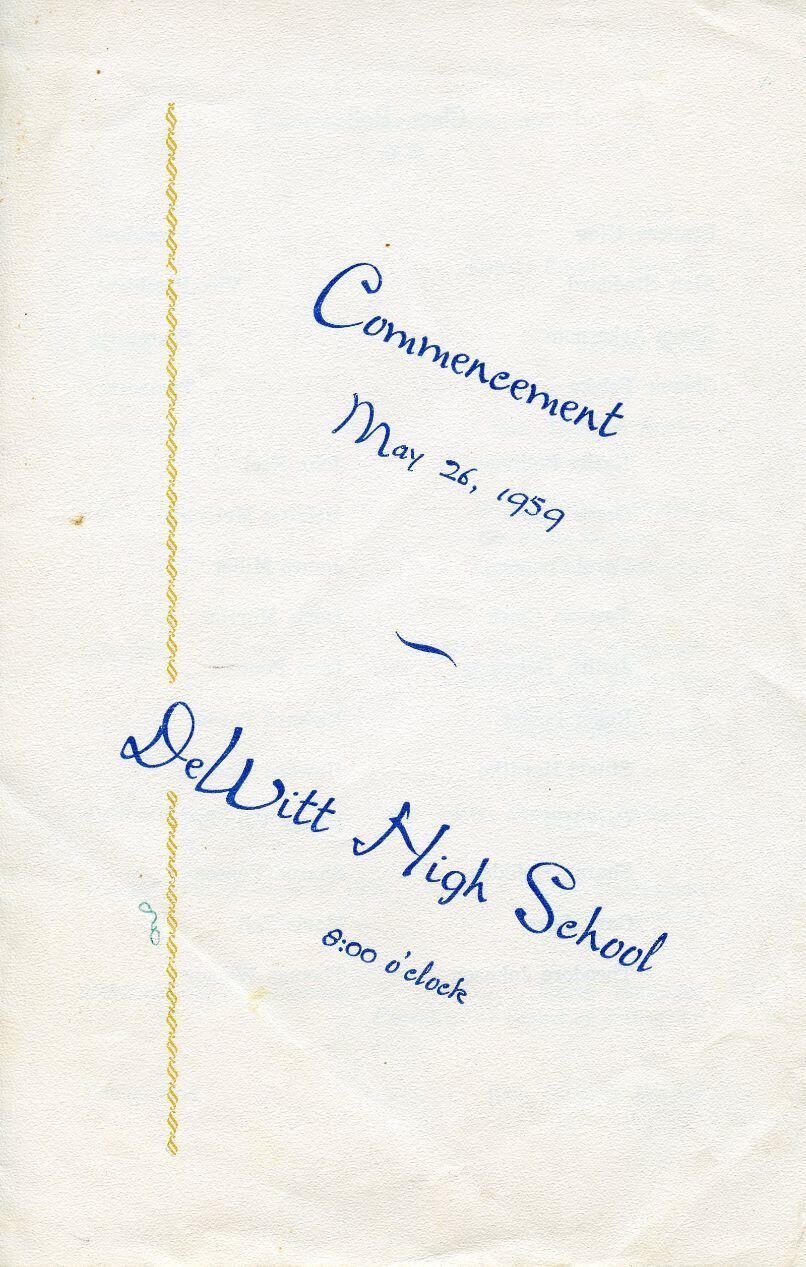 Commencement
May 26, 1959
DeWitt High School
8:00 o'clock